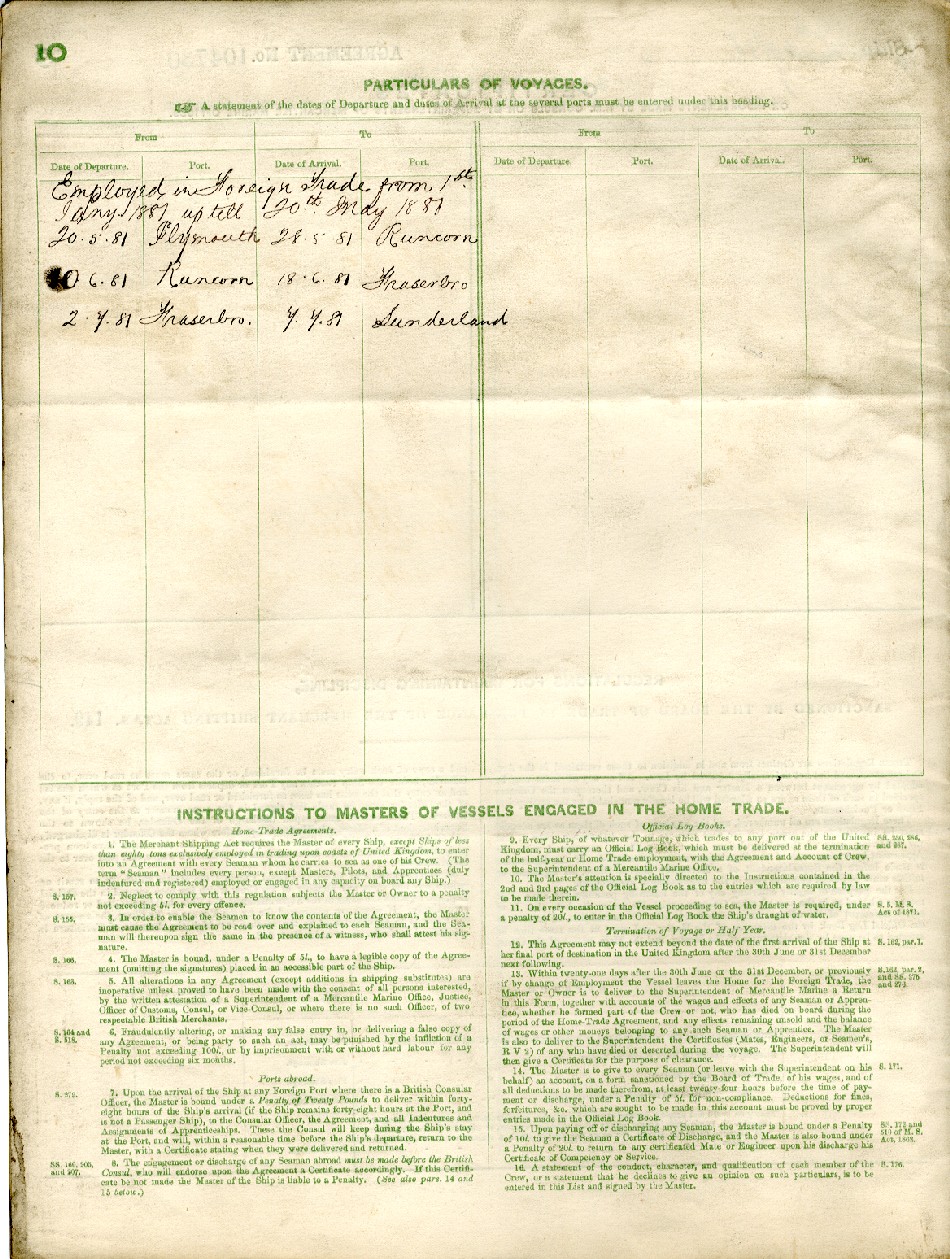 10
PARTICULARS OF VOYAGES.
A statement of the dates of Departure and dates of Arrival at the several ports must be entered under this heading.
From To From To
Date of Departure. Port. Date of Arrival. Port. Date of Departure. Port. Date of Arrival. Port.
Employed in Foreign Trade from 1st
Jany 1881 up till 20th May 1881
20.5.81 Plymouth 28.5.81 Runcorn
6.81 Runcorn 18.6.81 Fraserbro
2.7.81 Fraserbro. 7.7.81 Sunderland
INSTRUCTIONS TO MASTERS OF VESSELS ENGAGED IN THE HOME TRADE.
Home Trade Agreements.
1. The Merchant Shipping Act requires the Master of every Ship, except Ships of less
than eighty tons exclusively employed in trading upon coasts of United Kingdom, to enter
into an Agreement with every Seaman whom he carries to sea as one of his Crew. (The
term "Seaman" includes every person, except Masters, Pilots, and Apprentices (duly
indentured and registered) employed or engaged in any capacity on board any Ship.)
S. 157. 2. Neglect to comply with this regulation subjects the Master or Owner to a penalty
not exceeding 5l. for every offence.
S. 155. 3. In order to enable the Seamen to know the contents of the Agreement, the Master
must cause the Agreement to be read over and explained to each Seaman, and the Sea-
man will thereupon sign the same in the presence of a witness, who shall attest his sig-
nature.
S. 166. 4. The Master is bound, under a Penalty of 5l., to have a legible copy of the Agree-
ment (omitting the signatures) placed in an accessible part of the Ship.
S. 163. 5. All alterations in any Agreement (except additions in shipping substitutes) are
inoperative unless proved to have been made with the consent of all persons interested,
by the written attestation of a Superintendent of a Mercantile Marine Office, Justice,
Officer of Customs, Consul, or Vice-Consul, or where there is no such Officer, of two
respectable British Merchants.
S. 164 and 6. Fraudulently altering, or making any false entry in, or delivering a false copy of
S. 518. any Agreement, or being party to such an act, may be punished by the infliction of a
Penalty not exceeding 100l. or by imprisonment with or without hard labour for any
period not exceeding six months.
Ports abroad.
S. 279. 7. Upon the arrival of the Ship at any Foreign Port where there is a British Consular
Officer, the Master is bound under a Penalty of Twenty Pounds to deliver within forty-
eight hours of the Ship's arrival (if the Ship remains forty-eight hours at the Port, and
is not a Passenger Ship), to the Consular Officer, the Agreement, and all Indentures and
Assignments of Apprenticeships. These the Consul will keep during the Ship's stay
at the Port, and will, within a reasonable time before the Ship's departure, return to the
Master, with a Certificate stating when they were delivered and returned.
8. The engagement or discharge of any Seaman abroad must be made before the British
and 207. Consul, who will endorse upon the Agreement a Certificate accordingly. If this Certifi-
cate be not made the Master of the Ship is liable to a Penalty. (See also pars. 14 and
15 below.)
Official Log Books.
9. Every Ship, of whatever Tonnage, which trades to any port out of the United
Kingdom, must carry an Official Log Book, which must be delivered at the termination
of the half-year or Home Trade employment, with the Agreement and Account of Crew,
to the Superintendent of a Mercantile Marine Office.
10. The Master's attention is specially directed to the Instructions contained in the
2nd and 3rd pages of the Official Log Book as to the entries which are required by law
to be made therein.
11. On every occasion of the Vessel proceeding to sea, the Master is required, under S. 5, M. S.
a penalty of 20l., to enter in the Official Log Book the Ship's draught of water. Act of 1871.
Termination of Voyage or Half Year.
12. This Agreement may not extend beyond the date of the first arrival of the Ship at S. 162, par. 1.
her final port of destination in the United Kingdom after the 30th June or 31st December
next following.
13. Within twenty-one days after the 30th June or the 31st December, or previously
if by change of Employment the Vessel leaves the Home for the Foreign Trade, the
Master or Owner is to deliver to the Superintendent of Mercantile Marine a Return
in this Form, together with accounts of the wages and effects of any Seaman or Appren-
tice, whether he formed part of the Crew or not, who has died on board during the
period of the Home-Trade Agreement, and any effects remaining unsold and the balance
of wages or other moneys belonging to any such Seaman or Apprentice. The Master
is also to deliver to the Superintendent the Certificates (Mates, Engineers, or Seamen's,
R V 2) of any who have died or deserted during the voyage. The Superintendent will
then give a Certificate for the purpose of clearance.
14. The Master is to give to every Seaman (or leave with the Superintendent on his S. 171.
behalf) an account, on a form sanctioned by the Board of Trade, of his wages, and of
all deductions to be made therefrom, at least twenty-four hours before the time of pay-
ment or discharge, under a Penalty of 5l. for non-compliance. Deductions for fines,
forfeitures, &c. which are sought to be made in this account must be proved by proper
entries made in the Official Log Book.
15. Upon paying off or discharging any Seaman, the Master is bound under a Penalty
of 10l. to give the Seaman a Certificate of Discharge, and the Master is also bound under
a Penalty of 20l. to return to any certificated Mate or Engineer upon his discharge his
Certificate of Competency or Service.
16. A statement of the conduct, character, and qualification of each member of the S. 176.
Crew, or a statement that he declines to give an opinion on such particulars, is to be
entered in this List and signed by the Master.